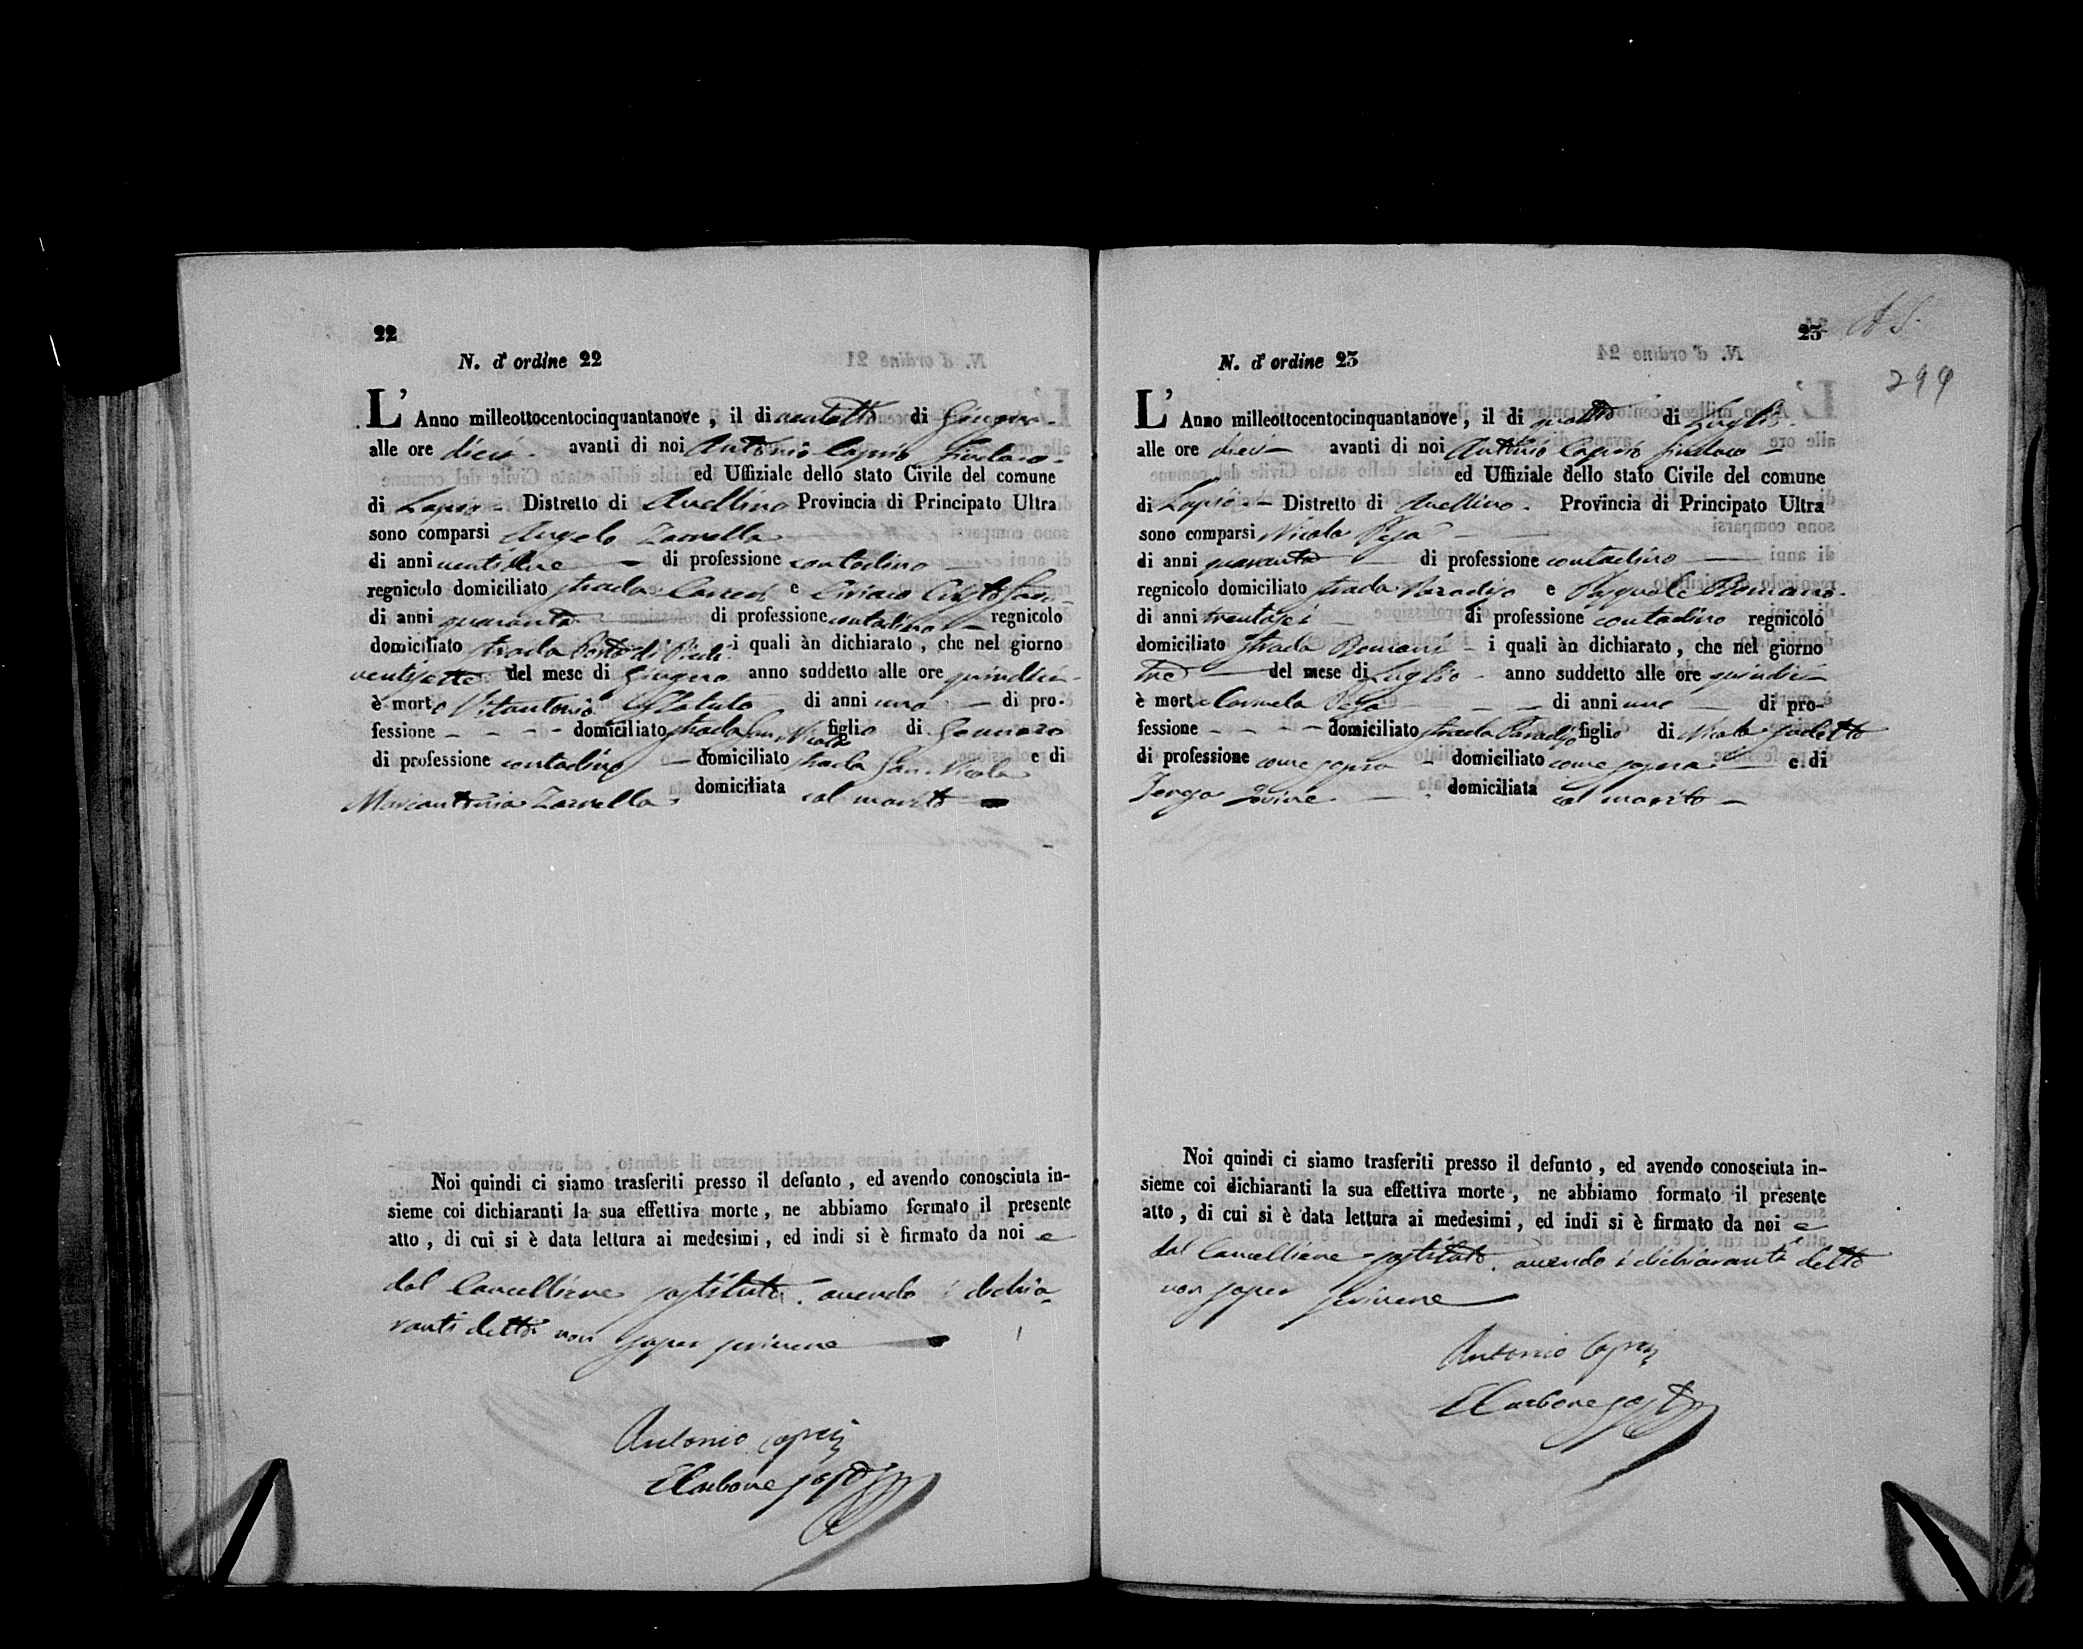 22
N. d' ordine 22
L' Anno millottocentocinquantanove, il di ventotto di Giugno
alle ore dieci avanti di noi Antonio Caprio Sindaco
ed Uffiziale dello stato Civile del comune
di Lapio Distretto di Avellino Provincia di Principato Ultra
sono comparsi Angelo Zarrella
di anni ventidue di professione contadino
regnicolo domiciliato strada Carceri e Ciriaco
di anni quaranta di professione contadino regnicolo
domiciliato strada Porta di Piedi i quali àn dichiarato, che nel giorno
ventisette del mese di Giugno anno suddetto alle ore quindici
è morto Vitantonio di anni uno di pro-
fessione - - - - domiciliato strada San Nicola figlio di Gennaro
di professione contadino domiciliato strada San Nicola e di
Mariantonia Zarrella domiciliata col marito
Noi quindi ci siamo trasferiti presso il defunto, ed avendo conosciuta in-
sieme coi dichiaranti la sua effettiva morte, ne abbiamo formato il presente
atto, di cui si è data lettura ai medesimi, ed indi si è firmato da noi e
dal Cancelliere sostituto, avendo i dichia-
ranti detto non saper scrivere
Antonio Caprio
E Carbone sost
23
299
N. d' ordine 23
L' Anno milleottocentocinquantanove, il di quattro di Luglio
alle ore dieci avanti di noi Antonio Caprio Sindaco
ed Uffiziale dello stato Civile del comune
di Lapio Distretto di Avellino Provincia di Principato Ultra
sono comparsi Nicola Pesa
di anni quaranta di professione contadino
regnicolo domiciliato strada Paradiso e Pasquale Romano
di anni trentasei di professione contadino regnicolo
domiciliato strada Romani i quali àn dichiarato, che nel giorno
tre del mese di Luglio anno suddetto alle ore quindici
è morta Carmela Pesa - - di anni uno di pro-
fessione - - - - domiciliato strada Paradiso figlia di Nicola sudetto
di professione come sopra domiciliato come sopra e di
Teresa Iovine domiciliata col marito
Noi quindi ci siamo trasferiti presso il defunto, ed avendo conosciuta in-
sieme coi dichiaranti la sua effettiva morte, ne abbiamo formato il presente
atto, di cui si è data lettura ai medesimi, ed indi si è firmato da noi e
dal Cancelliere sostituto, avendo i dichiaranti detto
non saper scrivere
Antonio Caprio
E Carbone sost